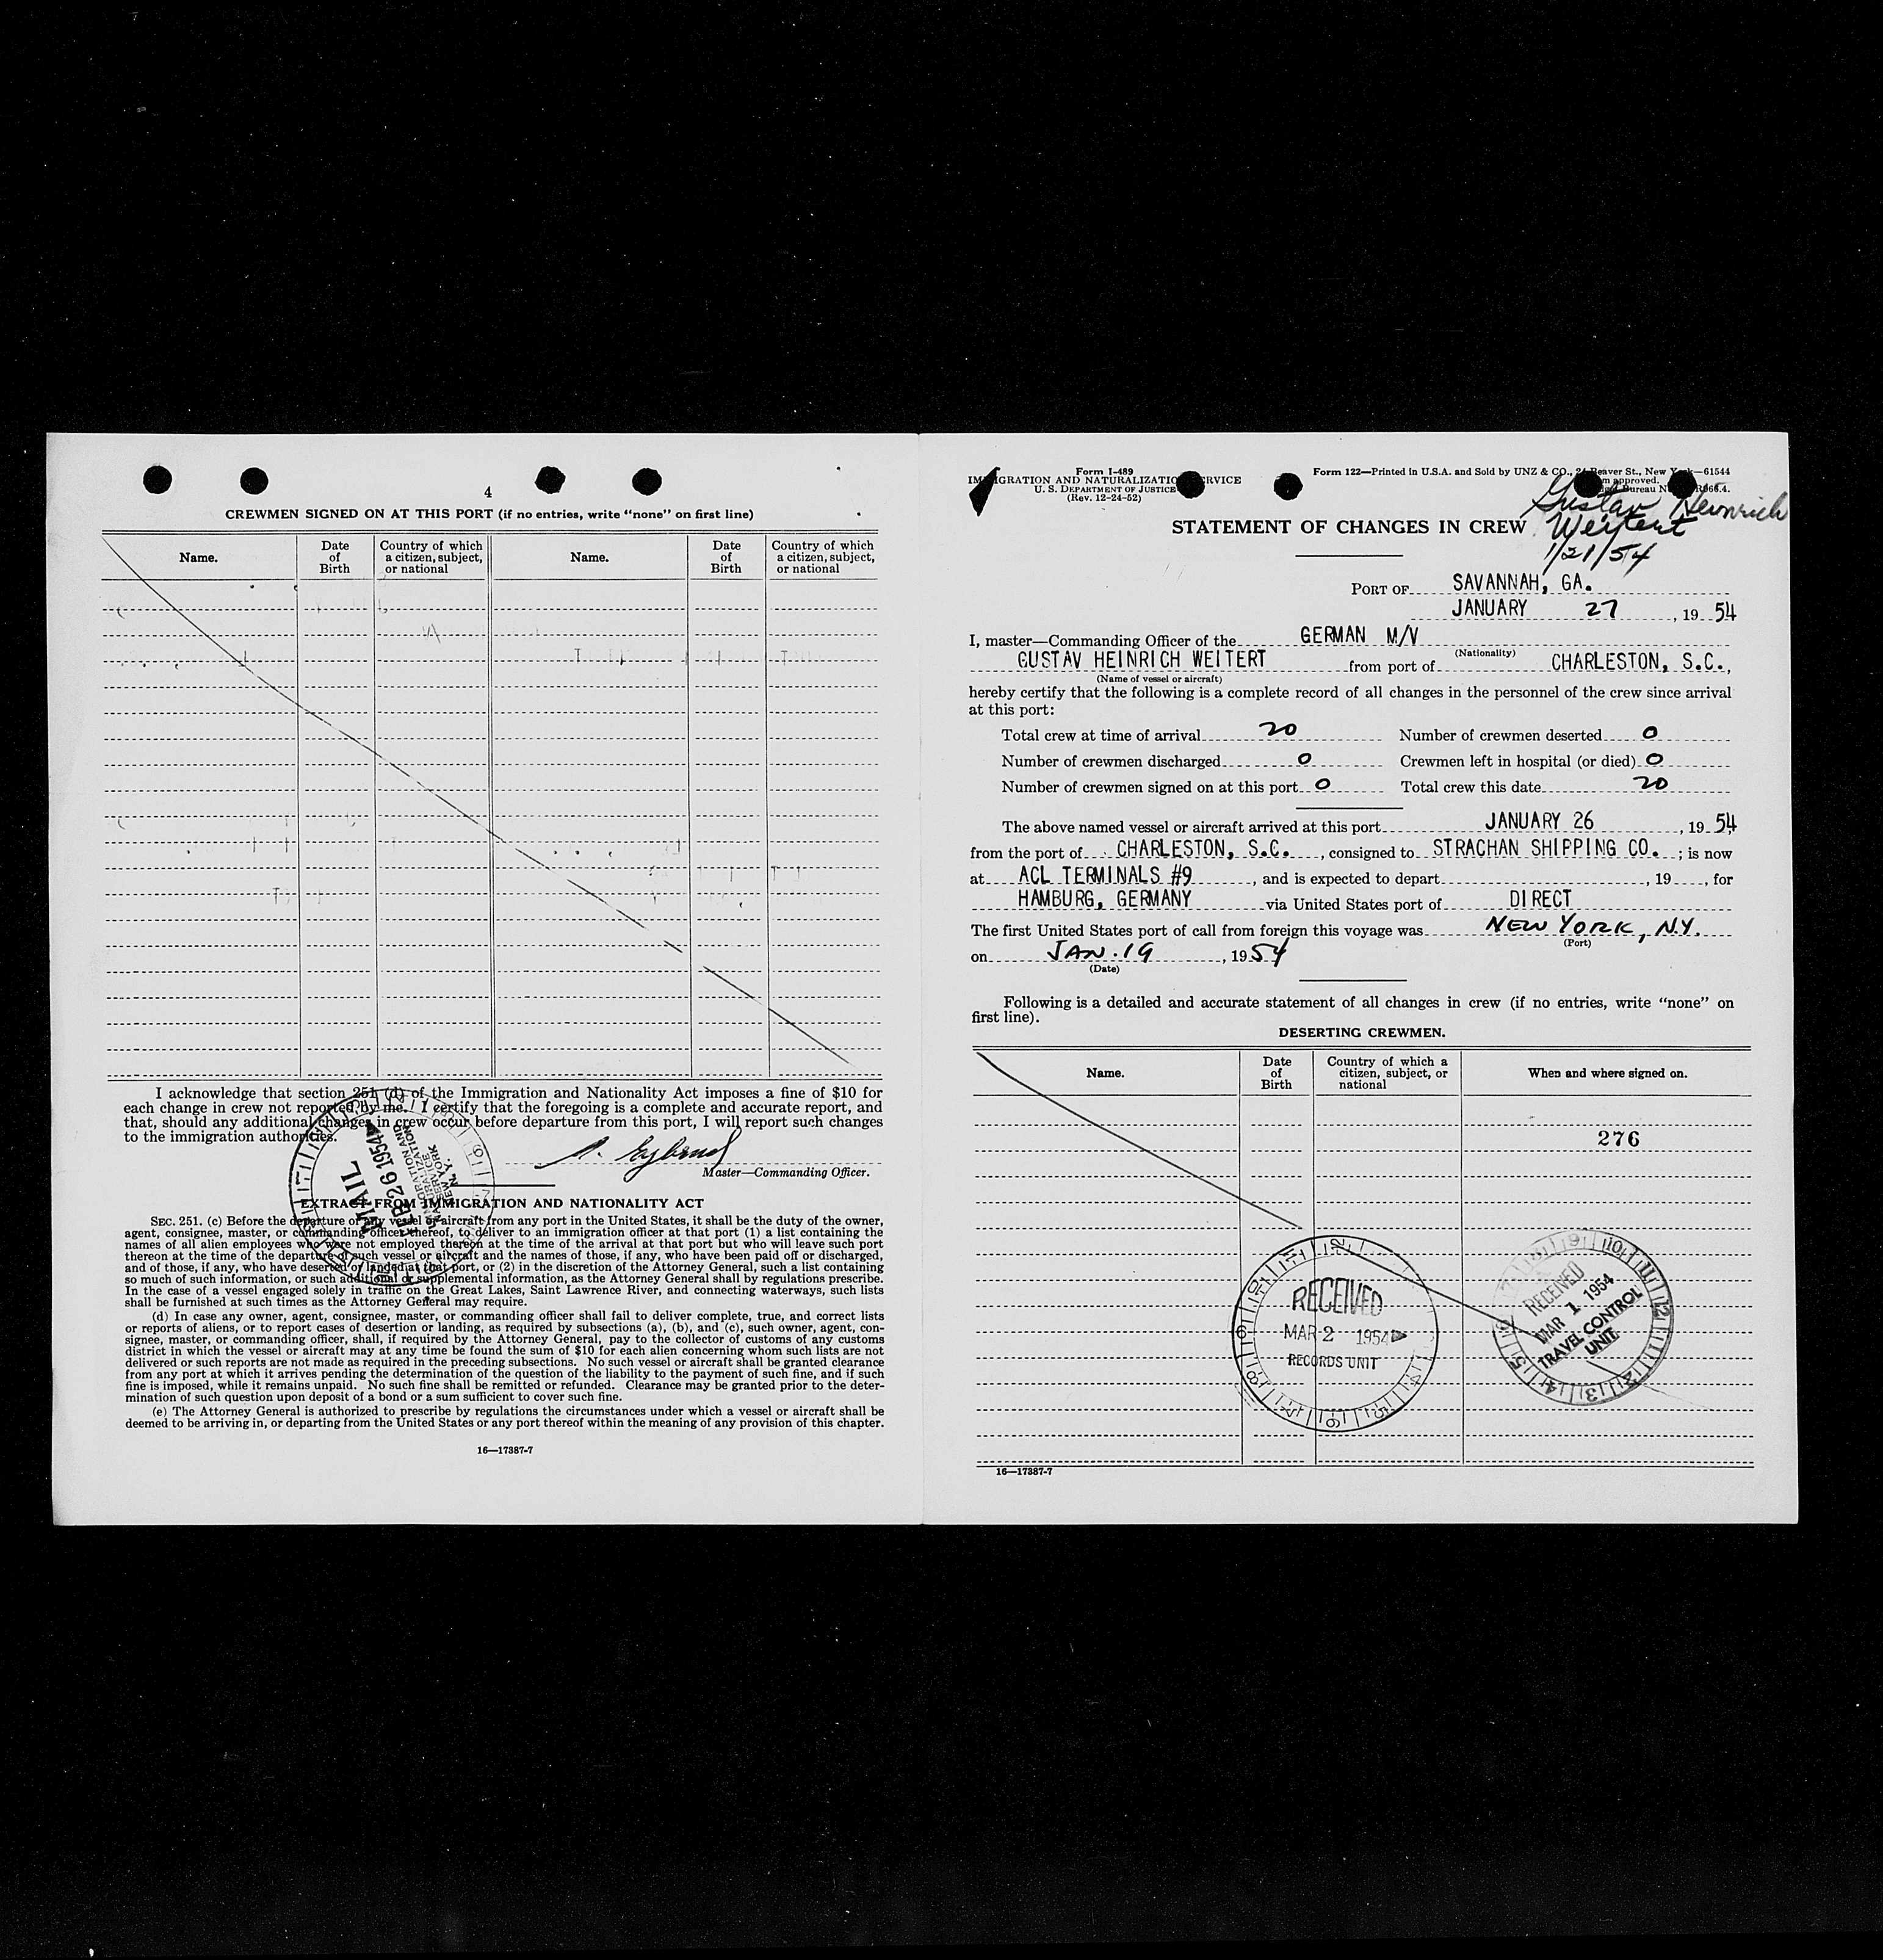 4
CREWMEN SIGNED ON AT THIS PORT (if no entries, write "none" on first line)
Name.
Date of Birth
Country of which a citizen, subject, or national
Name.
Date of Birth
Country of which a citizen, subject, or national
I acknowledge that section 251 (d) of the Immigration and Nationality Act imposes a fine of $10 for
each change in crew not reported by me. I certify that the foregoing is a complete and accurate report, and
that, should any additional changes in crew occur before departure from this port, I will report such changes
to the immigration authorities.
Master—Commanding Officer.
MAIL
FEB 26 1954
IMMIGRATION AND
NATURALIZATION
SERVICE
NEW YORK
N.Y.
EXTRACT FROM IMMIGRATION AND NATIONALITY ACT
SEC. 251. (c) Before the departure of any vessel or aircraft from any port in the United States, it shall be the duty of the owner,
agent, consignee, master, or commanding officer thereof, to deliver to an immigration officer at that port (1) a list containing the
names of all alien employees who were not employed thereon at the time of the arrival at that port but who will leave such port
thereon at the time of the departure of such vessel or aircraft and the names of those, if any, who have been paid off or discharged,
and of those, if any, who have deserted or landed at that port, or (2) in the discretion of the Attorney General, such a list containing
so much of such information, or such additional or supplemental information, as the Attorney General shall by regulations prescribe.
In the case of a vessel engaged solely in traffic on the Great Lakes, Saint Lawrence River, and connecting waterways, such lists
shall be furnished at such times as the Attorney General may require.
(d) In case any owner, agent, consignee, master, or commanding officer shall fail to deliver complete, true, and correct lists
or reports of aliens, or to report cases of desertion or landing, as required by subsections (a), (b), and (c), such owner, agent, con-
signee, master, or commanding officer, shall, if required by the Attorney General, pay to the collector of customs of any customs
district in which the vessel or aircraft may at any time be found the sum of $10 for each alien concerning whom such lists are not
delivered or such reports are not made as required in the preceding subsections. No such vessel or aircraft shall be granted clearance
from any port at which it arrives pending the determination of the question of the liability to the payment of such fine, and if such
fine is imposed, while it remains unpaid. No such fine shall be remitted or refunded. Clearance may be granted prior to the deter-
mination of such question upon deposit of a bond or a sum sufficient to cover such fine.
(e) The Attorney General is authorized to prescribe by regulations the circumstances under which a vessel or aircraft shall be
deemed to be arriving in, or departing from the United States or any port thereof within the meaning of any provision of this chapter.
16—17387-7
Form I-489
IMMIGRATION AND NATURALIZATION SERVICE
U. S. DEPARTMENT OF JUSTICE
(Rev. 12-24-52)
Form 122—Printed in U.S.A. and Sold by UNZ & CO., 24 Beaver St., New York—61544
approved.
Bureau
Gustav Heinrich
Weitert
1/21/54
STATEMENT OF CHANGES IN CREW
PORT OF SAVANNAH, GA.
JANUARY 27, 1954
I, master—Commanding Officer of the GERMAN M/V
(Nationality)
GUSTAV HEINRICH WEITERT from port of CHARLESTON, S.C.,
(Name of vessel or aircraft)
hereby certify that the following is a complete record of all changes in the personnel of the crew since arrival
at this port:
Total crew at time of arrival 20 Number of crewmen deserted 0
Number of crewmen discharged 0 Crewmen left in hospital (or died) 0
Number of crewmen signed on at this port 0 Total crew this date 20
The above named vessel or aircraft arrived at this port JANUARY 26, 1954,
from the port of CHARLESTON, S.C., consigned to STRACHAN SHIPPING CO. ; is now
at ACL TERMINALS #9, and is expected to depart , 19 , for
HAMBURG, GERMANY via United States port of DIRECT
The first United States port of call from foreign this voyage was NEW YORK, N.Y.
(Port)
on JAN. 19, 1954
(Date)
Following is a detailed and accurate statement of all changes in crew (if no entries, write "none" on
first line).
DESERTING CREWMEN.
Name.
Date of Birth
Country of which a citizen, subject, or national
When and where signed on.
276
RECEIVED
MAR 2 1954
RECORDS UNIT
RECEIVED
MAR 1 1954
TRAVEL CONTROL
UNIT
16—17387-7